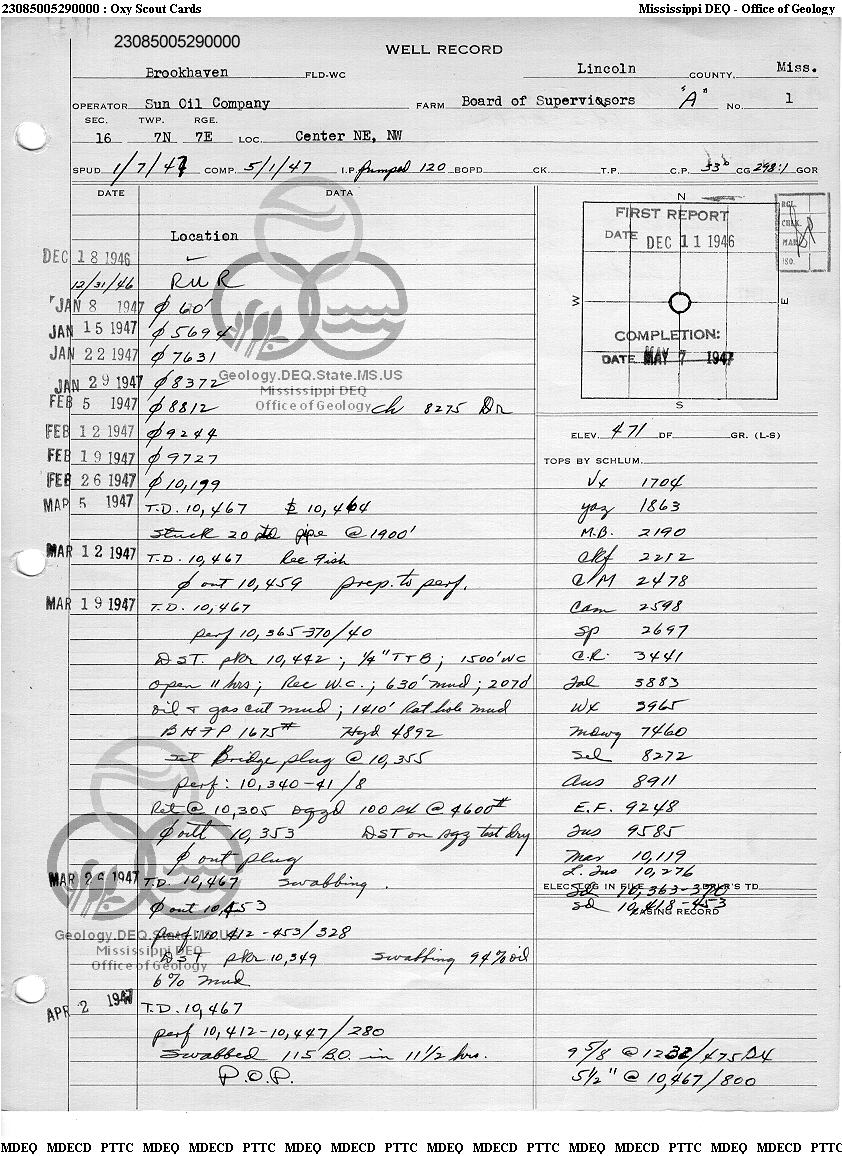 23085005290000 : Oxy Scout Cards Mississippi DEQ - Office of Geology
23085005290000
WELL RECORD
Brookhaven FLD-WC Lincoln COUNTY, Miss.
OPERATOR Sun Oil Company FARM Board of Supervisors "A" No. 1
SEC. TWP. RGE.
16 7N 7E LOC. Center NE, NW
SPUD 1/7/47 COMP. 5/1/47 I.P. Pumped 120 BOPD CK. T.P. C.P. 33° CG 298:1 GOR
DATE DATA
Location
DEC 18 1946
12/31/46 RUR
JAN 8 1947 ϕ 60'
JAN 15 1947 ϕ 5694
JAN 22 1947 ϕ 7631
JAN 29 1947 ϕ 8372
FEB 5 1947 ϕ 8812 Ch 8275 Dr
FEB 12 1947 ϕ 9244
FEB 19 1947 ϕ 9727
FEB 26 1947 ϕ 10,199
MAR 5 1947 T.D. 10,467 10,464
Stuck 20 pipe @ 1900'
MAR 12 1947 T.D. 10,467 Rec fish
ϕ out 10,459 prep. to perf.
MAR 19 1947 T.D. 10,467
perf 10,365-370/40
DST. pkr 10,442; 1/4" T+B; 1500' WC
open 11 hrs; Rec W.C.; 630' mud; 2070'
oil + gas cut mud; 1410' Rat hole mud
BHFP 1675# Hyd 4892
Set Bridge plug @ 10,355
perf: 10,340-41/8
Ret @ 10,305 sqzd 100 sx @ 4600#
ϕ out 10,353 DST on sqz test dry
ϕ out plug
MAR 26 1947 T.D. 10,467 Swabbing.
ϕ out 10,453
perf 10,412-453/328
DST pkr 10,349 Swabbing 94% oil
6% mud
APR 2 1947 T.D. 10,467
perf 10,412-10,447/280
Swabbed 115 B.O. in 11 1/2 hrs.
P.O.P.
Geology.DEQ.State.MS.US
Mississippi DEQ
Office of Geology
Geology.DEQ.State.MS.US
Mississippi DEQ
Office of Geology
N
FIRST REPORT
DATE DEC 11 1946
W E
COMPLETION:
DATE MAY 7 1947
S
REG.
MAP
ISO.
ELEV. 471 DF GR. (L-S)
TOPS BY SCHLUM.
Vx 1704
Yaz 1863
M.B. 2190
Ckf 2212
C/M 2478
Cam 2598
Sp 2697
C.R. 3441
Sal 3883
Wx 3965
Mdwy 7460
Sel 8272
Aus 8911
E.F. 9248
Tus 9585
Mar 10,119
L. Tus 10,276
ELEC. LOG IN FILE DRLR'S TD
Sd 10,363-370
Sd 10,418-453
LEASING RECORD
9 5/8 @ 1232/475
5 1/2" @ 10,467/800
MDEQ MDECD PTTC MDEQ MDECD PTTC MDEQ MDECD PTTC MDEQ MDECD PTTC MDEQ MDECD PTTC MDEQ MDECD PTTC